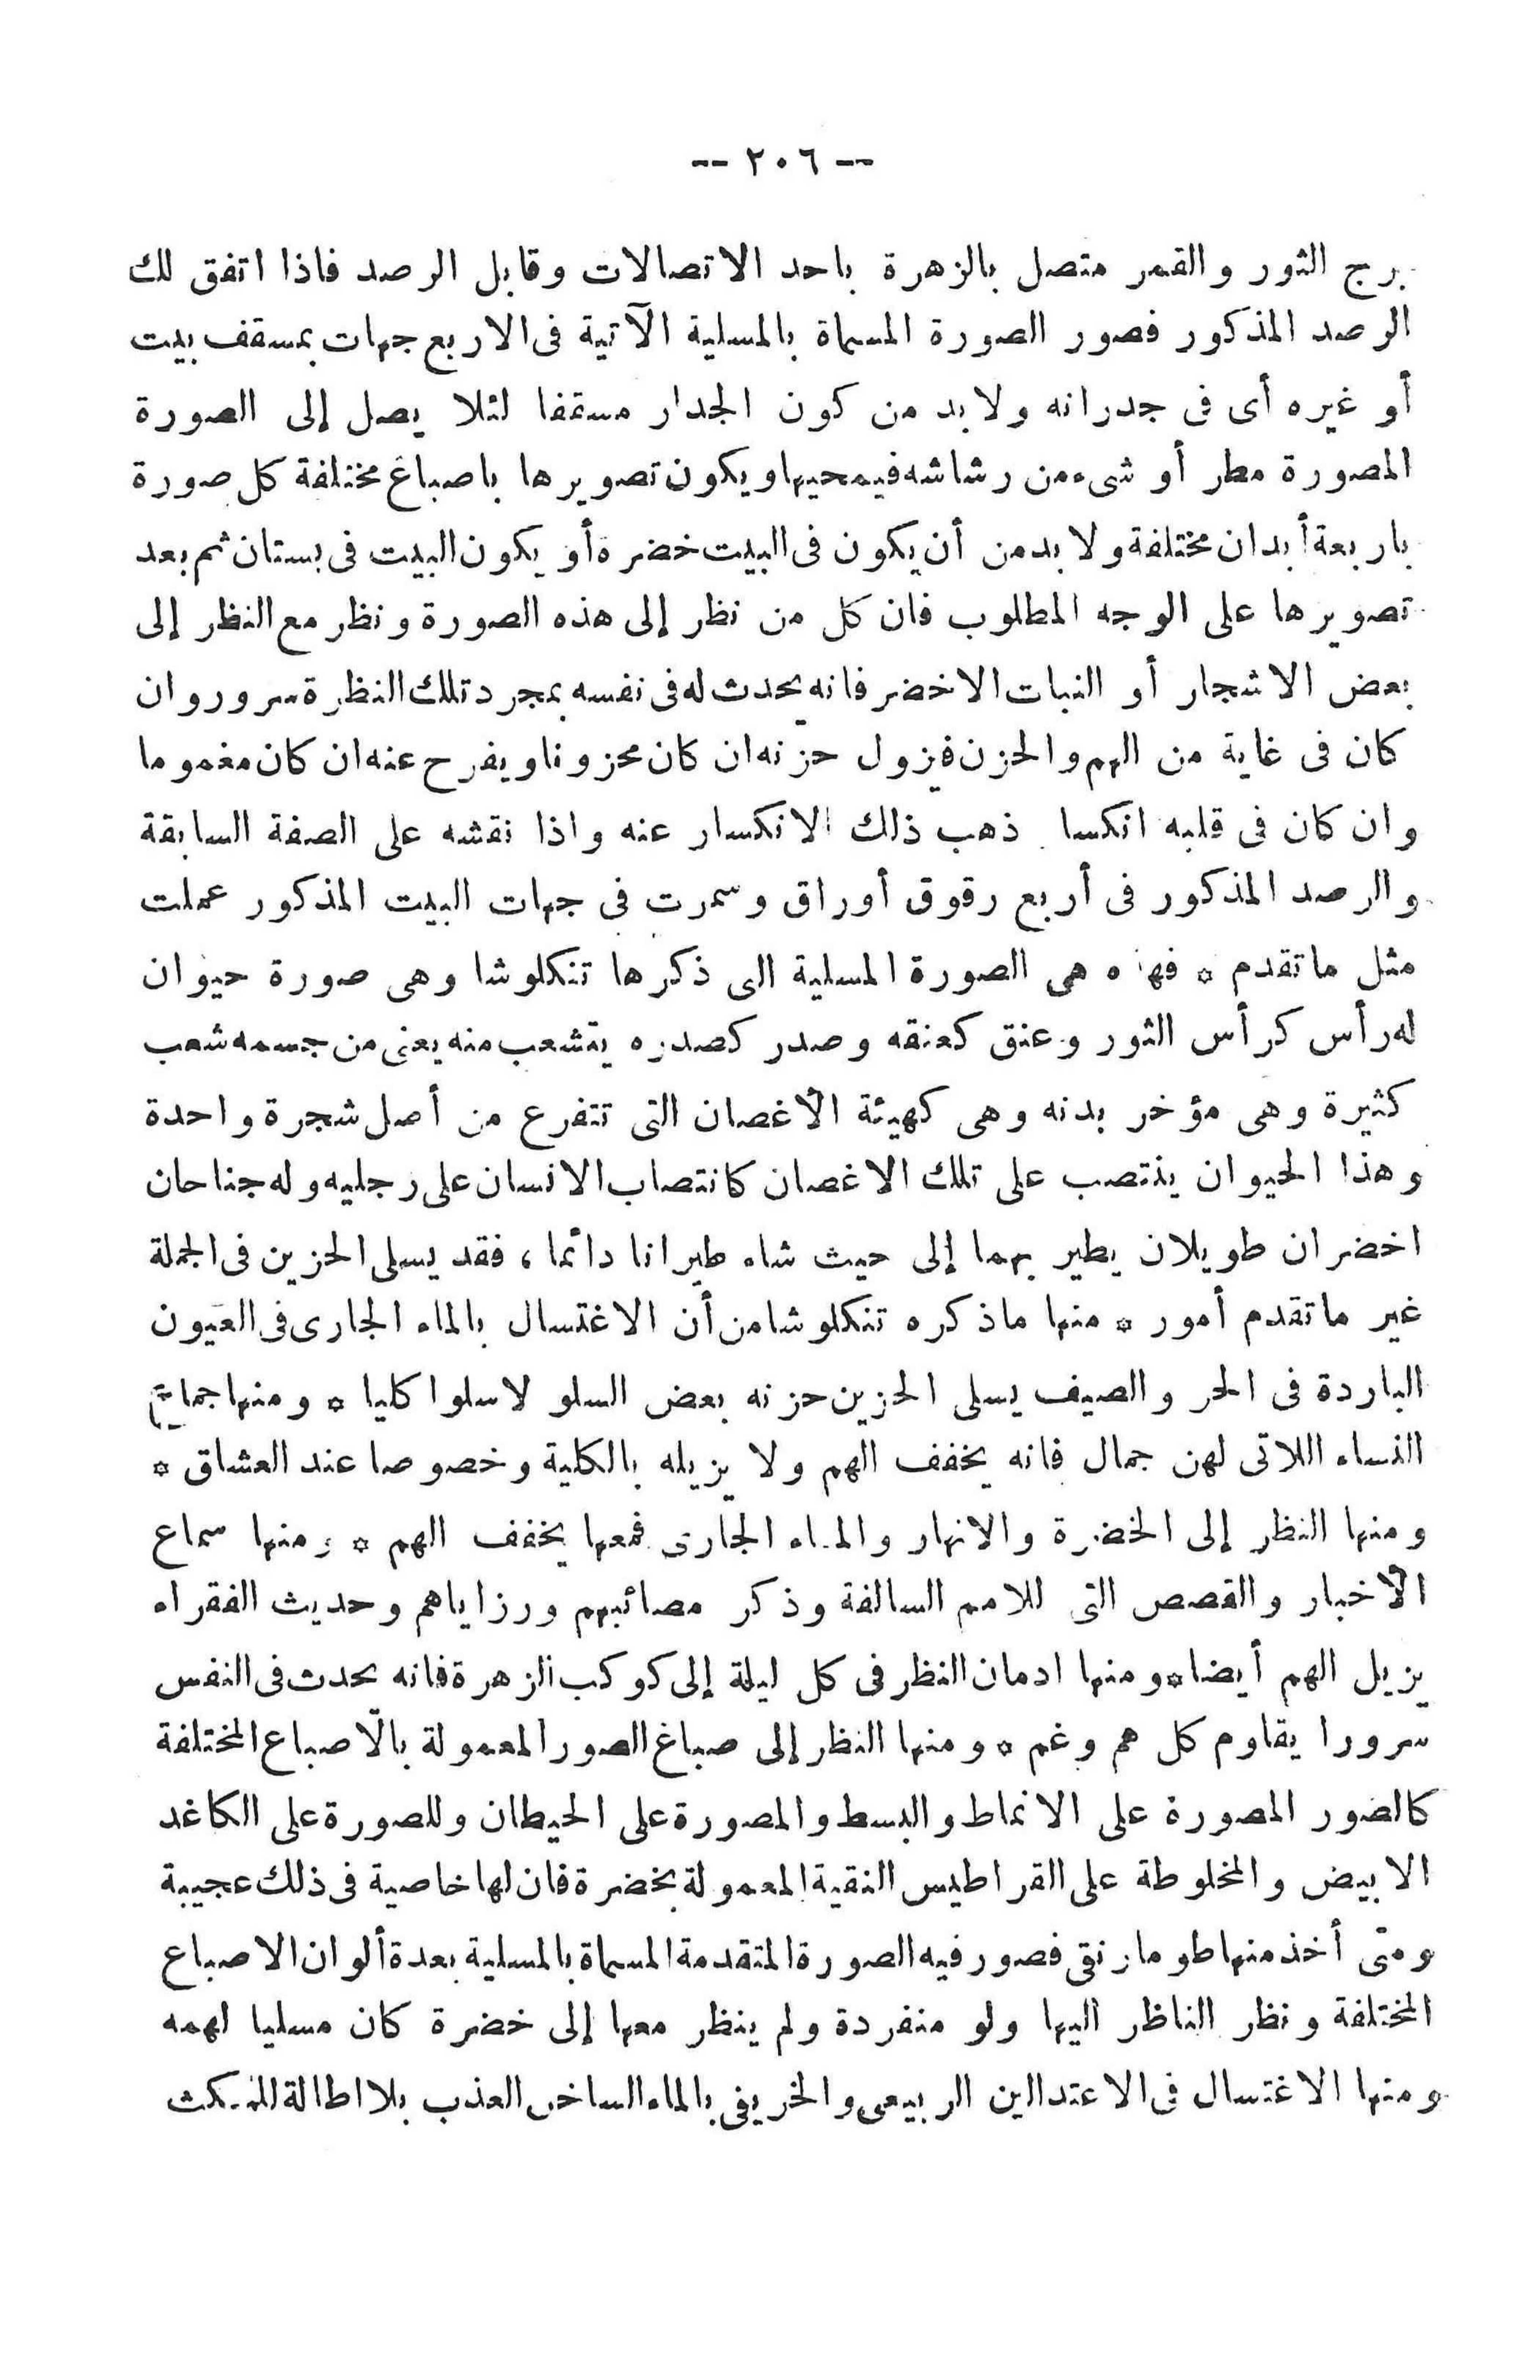 -- ٢٠٦ --
برج الثور والقمر متصل بالزهرة باحد الاتصالات وقابل الرصد فاذا اتفق لك
الرصد المذكور فصور الصورة المسماة بالمسلية الآتية فى الاربع جهات بمسقف بيت
أو غيره أى فى جدرانه ولابد من كون الجدار مسقفا لئلا يصل إلى الصورة
المصورة مطر أو شىء من رشاشه فيمحيها ويكون تصويرها باصباغ مختلفة كل صورة
باربعة أبدان مختلفة ولابد من أن يكون فى البيت خضرة أو يكون البيت فى بستان ثم بعد
تصويرها على الوجه المطلوب فان كل من نظر إلى هذه الصورة ونظر مع النظر إلى
بعض الاشجار أو النبات الاخضر فانه يحدث له فى نفسه بمجرد تلك النظرة سرور وان
كان فى غاية من الهم والحزن فيزول حزنه ان كان محزونا ويفرح عنه ان كان مغموما
وان كان فى قلبه انكسا ذهب ذلك الانكسار عنه واذا نقشه على الصفة السابقة
والرصد المذكور فى أربع رقوق أوراق وسمرت فى جهات البيت المذكور عملت
مثل ماتقدم * فهذه هى الصورة المسلية الى ذكرها تنكلوشا وهى صورة حيوان
له رأس كرأس الثور وعنق كعنقه وصدر كصدره يتشعب منه يعنى من جسمه شعب
كثيرة وهى مؤخر بدنه وهى كهيئة الأغصان التى تتفرع من أصل شجرة واحدة
وهذا الحيوان ينتصب على تلك الاغصان كانتصاب الانسان على رجليه وله جناحان
اخضران طويلان يطير بهما إلى حيث شاء طيرانا دائما ، فقد يسلى الحزين فى الجملة
غير ماتقدم أمور * منها ماذكره تنكلوشا من أن الاغتسال بالماء الجارى فى العيون
الباردة فى الحر والصيف يسلى الحزين حزنه بعض السلو لاسلوا كليا * ومنها جماع
النساء اللاتى لهن جمال فانه يخفف الهم ولا يزيله بالكلية وخصوصا عند العشاق *
ومنها النظر إلى الخضرة والانهار والماء الجارى فمعها يخفف الهم * ومنها سماع
الأخبار والقصص التى للامم السالفة وذكر مصائبهم ورزاياهم وحديث الفقراء
يزيل الهم أيضا * ومنها ادمان النظر فى كل ليلة إلى كوكب الزهرة فانه يحدث فى النفس
سرورا يقاوم كل هم وغم * ومنها النظر إلى صباغ الصور المعمولة بالأصباع المختلفة
كالصور المصورة على الانماط والبسط والمصورة على الحيطان وللصورة على الكاغد
الابيض والمخلوطة على القراطيس النقية المعمولة بخضرة فان لها خاصية فى ذلك عجيبة
ومتى أخذ منها طومار نقى فصور فيه الصورة المتقدمة المسماة بالمسلية بعدة ألوان الاصباع
المختلفة ونظر الناظر اليها ولو منفردة ولم ينظر معها إلى خضرة كان مسليا لهمه
ومنها الاغتسال فى الاعتدالين الربيعى والخريفى بالماء الساخن العذب بلا اطالة للمكث